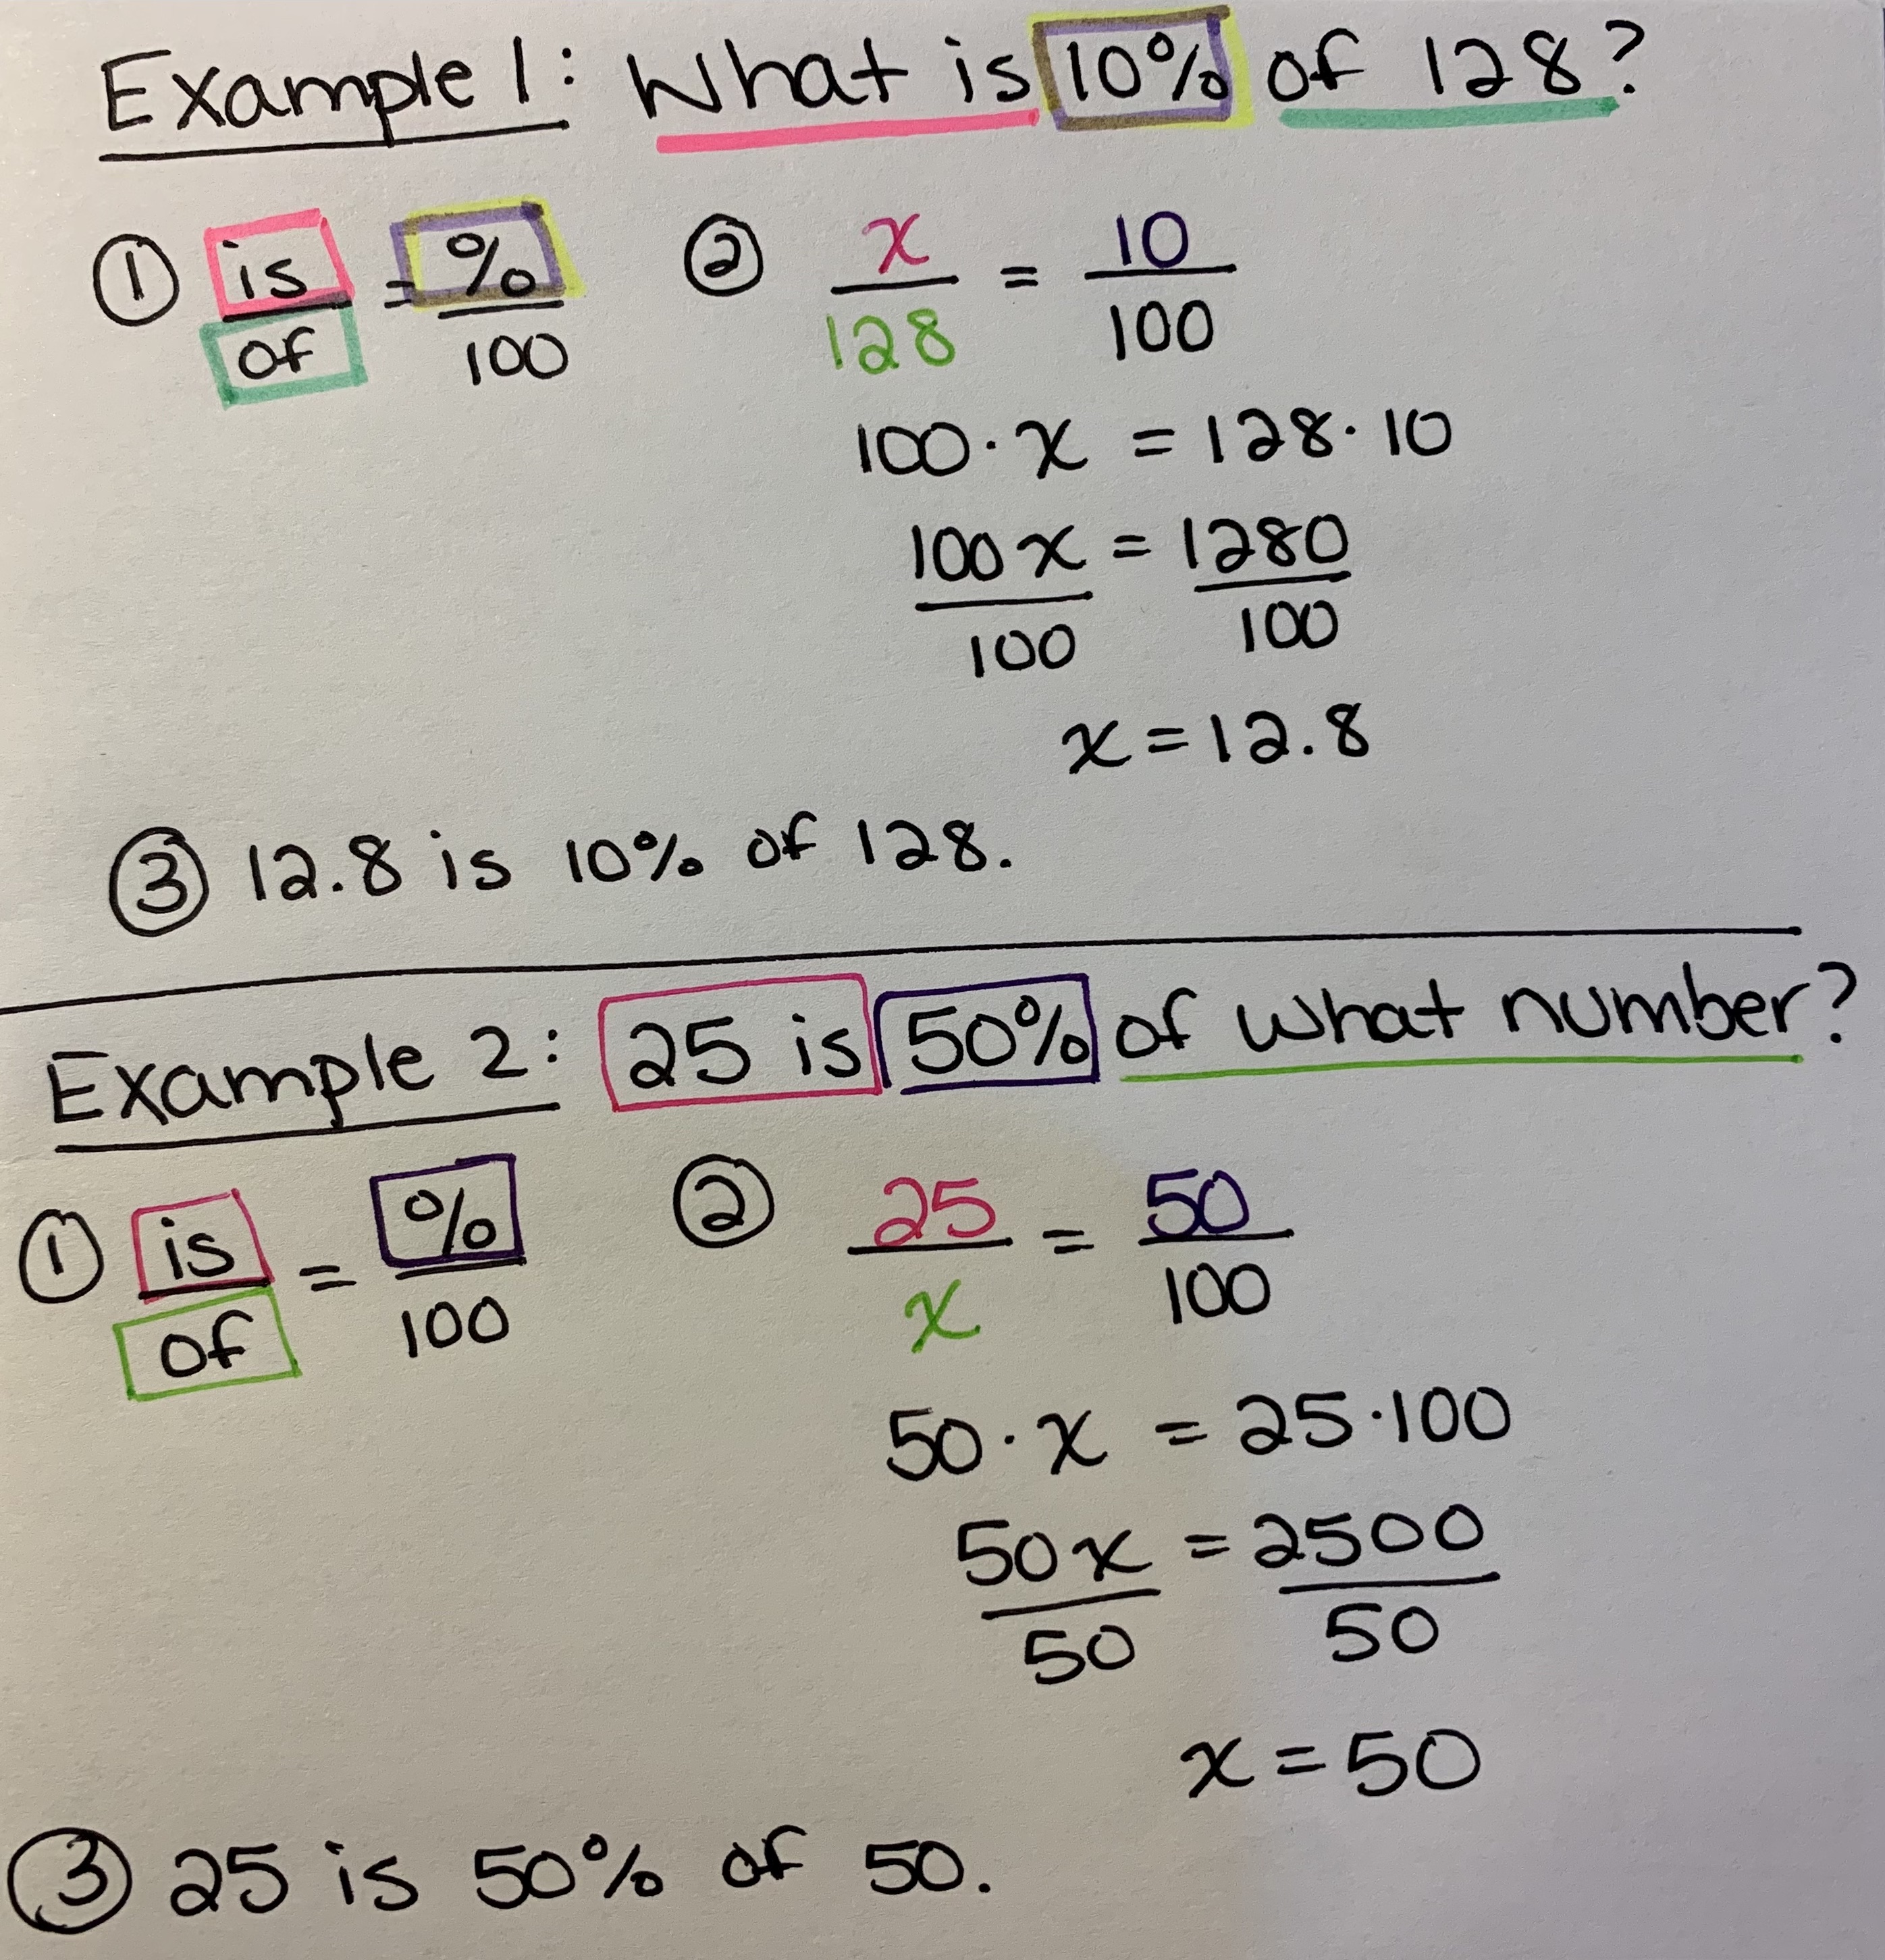 Example 1: What is 10% of 128?
① is/of = %/100
② x/128 = 10/100
100·x = 128·10
100x/100 = 1280/100
x = 12.8
③ 12.8 is 10% of 128.
Example 2: 25 is 50% of what number?
① is/of = %/100
② 25/x = 50/100
50·x = 25·100
50x/50 = 2500/50
x = 50
③ 25 is 50% of 50.